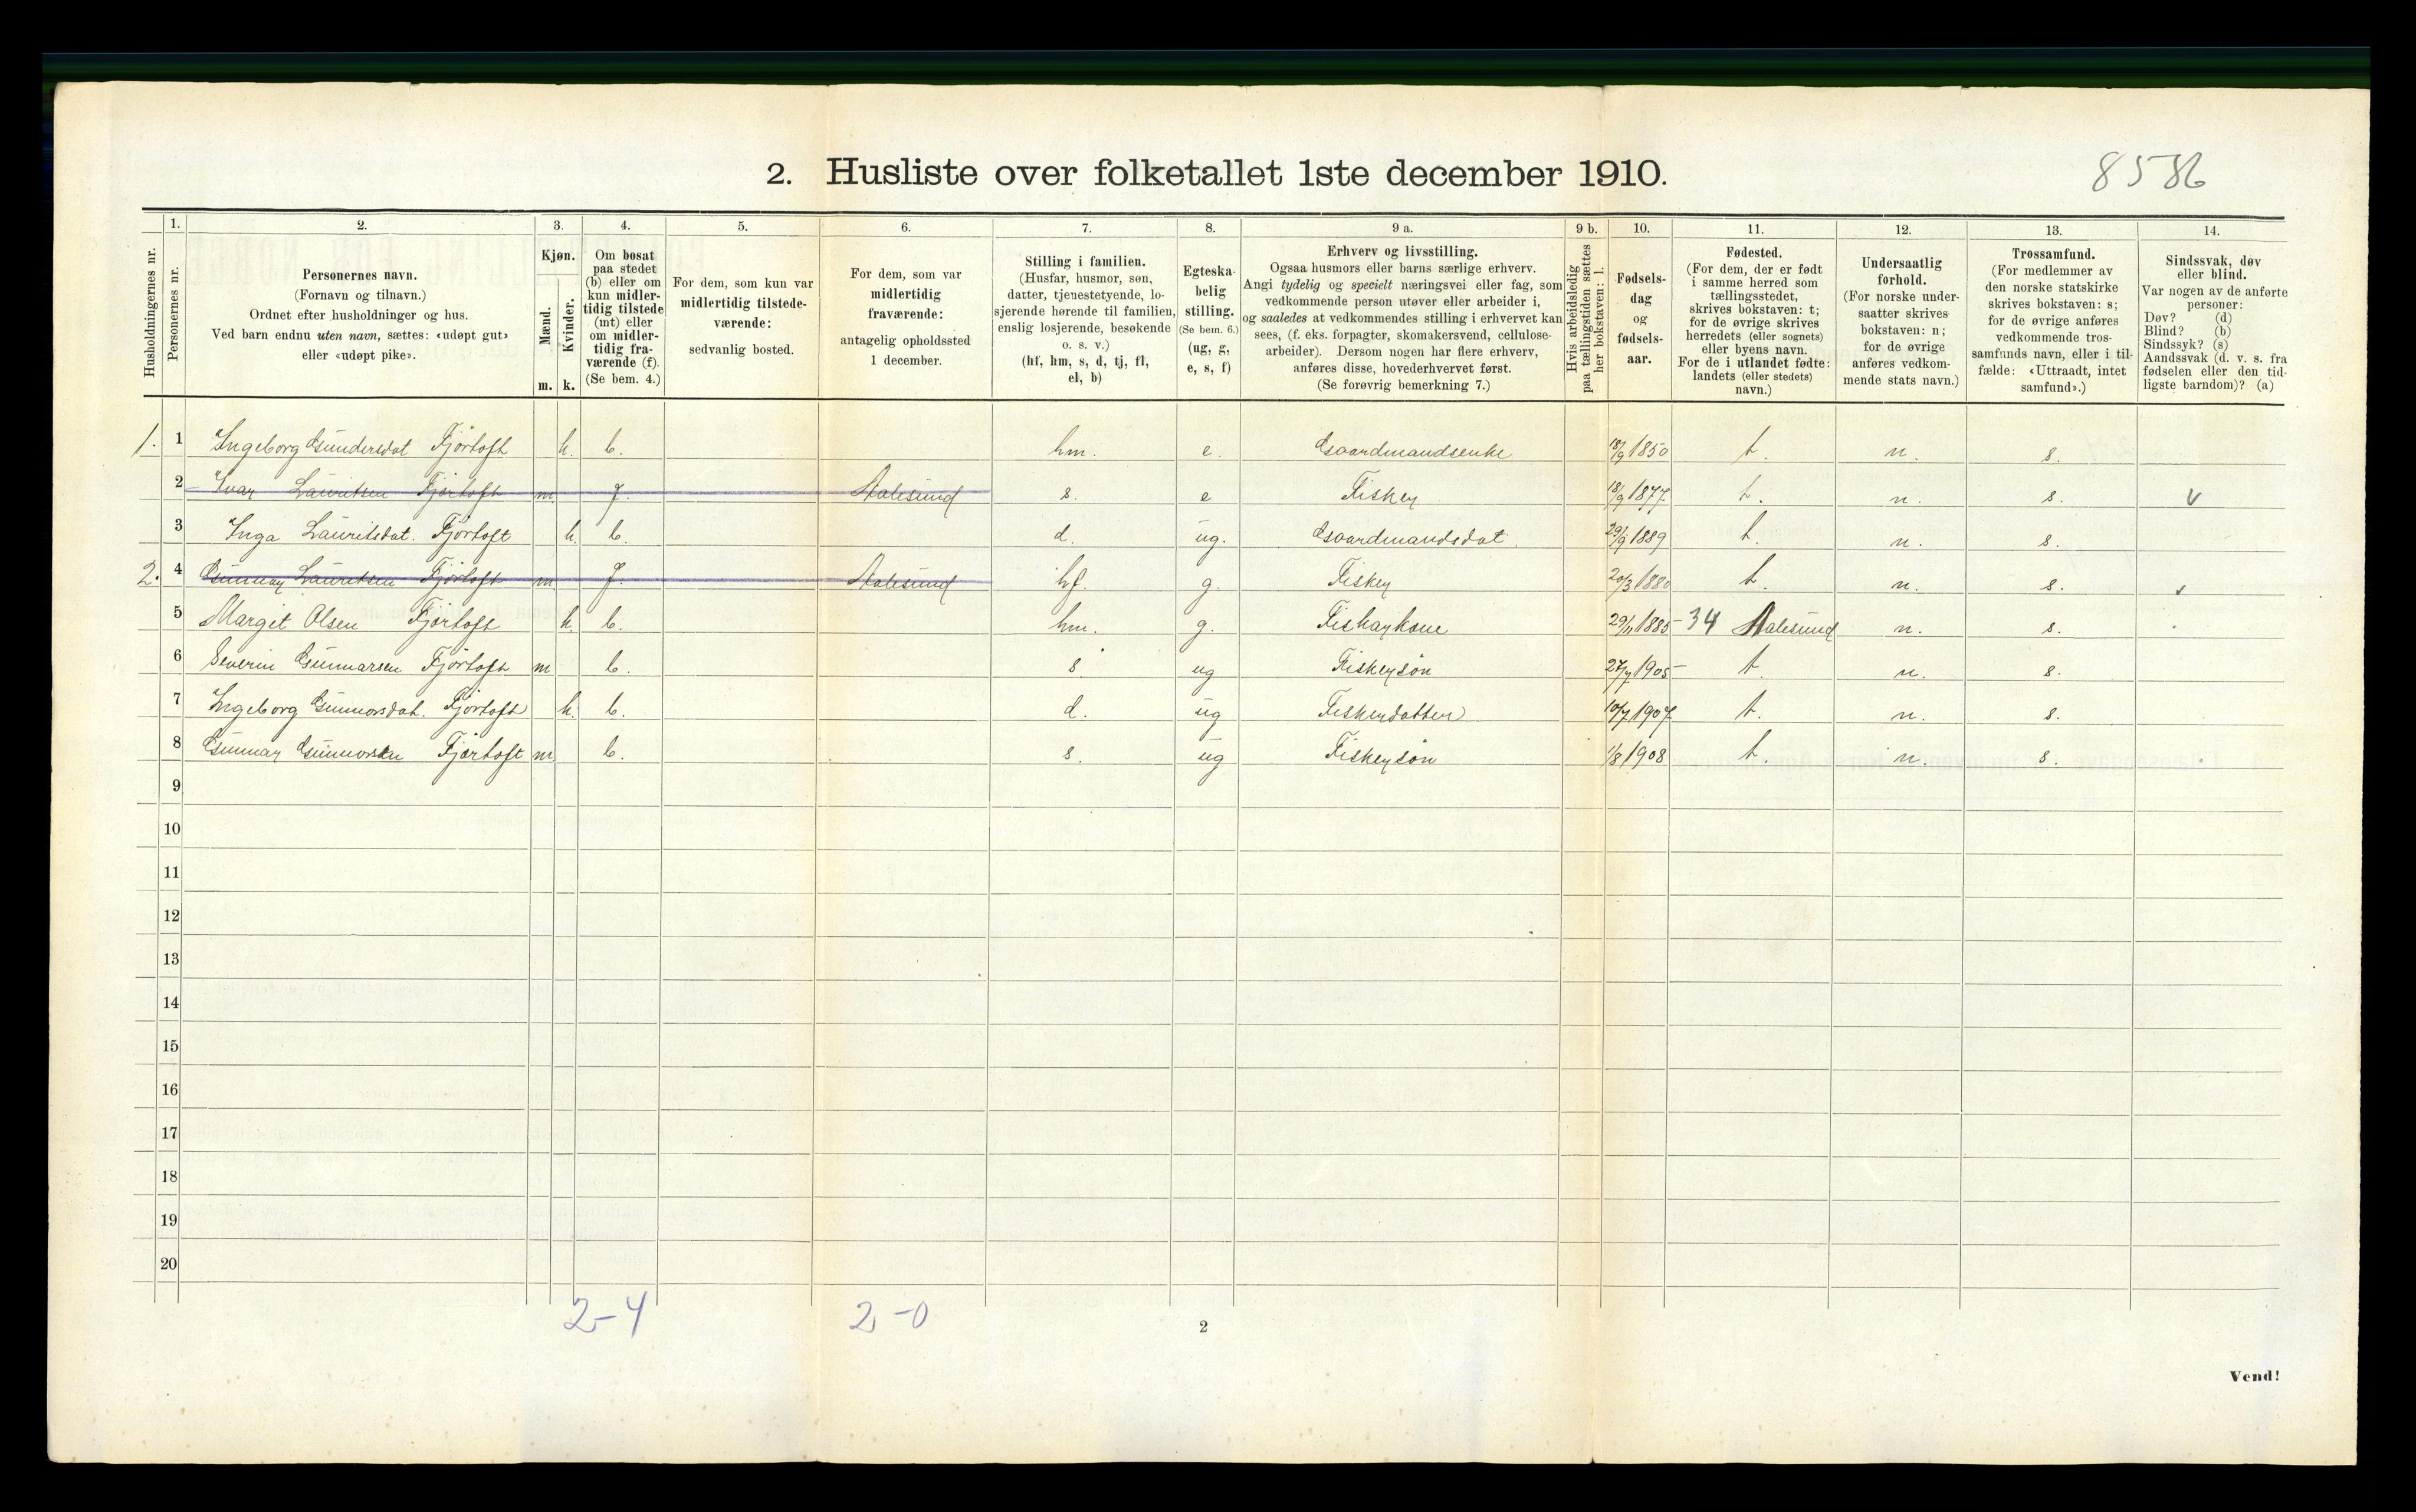 2. Husliste over folketallet 1ste december 1910.
8586
Husholdningernes nr.
1. Personernes nr.
2. Personernes navn.
(Fornavn og tilnavn.)
Ordnet efter husholdninger og hus.
Ved barn endnu uten navn, sættes: «udøpt gut»
eller «udøpt pike».
3. Kjøn.
Mænd. m.
Kvinder. k.
4. Om bosat
paa stedet
(b) eller om
kun midler-
tidig tilstede
(mt) eller
om midler-
tidig fra-
værende (f).
(Se bem. 4.)
5. For dem, som kun var
midlertidig tilstede-
værende:
sedvanlig bosted.
6. For dem, som var
midlertidig
fraværende:
antagelig opholdssted
1 december.
7. Stilling i familien.
(Husfar, husmor, søn,
datter, tjenestetyende, lo-
sjerende hørende til familien,
enslig losjerende, besøkende
o. s. v.)
(hf, hm, s, d, tj, fl,
el, b)
8. Egteska-
belig
stilling.
(Se bem. 6.)
(ug, g,
e, s, f)
9 a. Erhverv og livsstilling.
Ogsaa husmors eller barns særlige erhverv.
Angi tydelig og specielt næringsvei eller fag, som
vedkommende person utøver eller arbeider i,
og saaledes at vedkommendes stilling i erhvervet kan
sees, (f. eks. forpagter, skomakersvend, cellulose-
arbeider). Dersom nogen har flere erhverv,
anføres disse, hovederhvervet først.
(Se forøvrig bemerkning 7.)
9 b. Hvis arbeidsledig
paa tællingstiden sættes
her bokstaven: l.
10. Fødsels-
dag
og
fødsels-
aar.
11. Fødested.
(For dem, der er født
i samme herred som
tællingsstedet,
skrives bokstaven: t;
for de øvrige skrives
herredets (eller sognets)
eller byens navn.
For de i utlandet fødte:
landets (eller stedets)
navn.)
12. Undersaatlig
forhold.
(For norske under-
saatter skrives
bokstaven: n;
for de øvrige
anføres vedkom-
mende stats navn.)
13. Trossamfund.
(For medlemmer av
den norske statskirke
skrives bokstaven: s;
for de øvrige anføres
vedkommende tros-
samfunds navn, eller i til-
fælde: «Uttraadt, intet
samfund».)
14. Sindssvak, døv
eller blind.
Var nogen av de anførte
personer:
Døv? (d)
Blind? (b)
Sindssyk? (s)
Aandssvak (d. v. s. fra
fødselen eller den tid-
ligste barndom)? (a)
1. 1 Ingeborg Gundersdat Fjørtoft k. b. hm. e. Gaardmandsenke 18/9 1850 t. n. s.
2 Ivar Lauritsen Fjørtoft m f. Aalesund s. e Fisker 18/9 1877 t. n. s. v
3 Inga Lauritsdat. Fjørtoft k. b. d. ug. Gaardmandsdat. 29/9 1889 t. n. s.
2. 4 Gunnar Lauritsen Fjørtoft m f. Aalesund hf. g. Fisker 20/3 1880 t. n. s. v
5 Margit Olsen Fjørtoft k. b. hm. g. Fiskarkone 29/11 1885 - 34 Aalesund n. s.
6 Severin Gunnarsen Fjørtoft m b. s ug Fiskersøn 27/7 1905 - t. n. s.
7 Ingeborg Gunnarsdat. Fjørtoft k. b. d. ug Fiskerdatter 10/7 1907 t. n. s.
8 Gunnar Gunnarsen Fjørtoft m b. s. ug Fiskersøn 1/8 1908 t. n. s.
9
10
11
12
13
14
15
16
17
18
19
20
2-4 2-0
2
Vend!